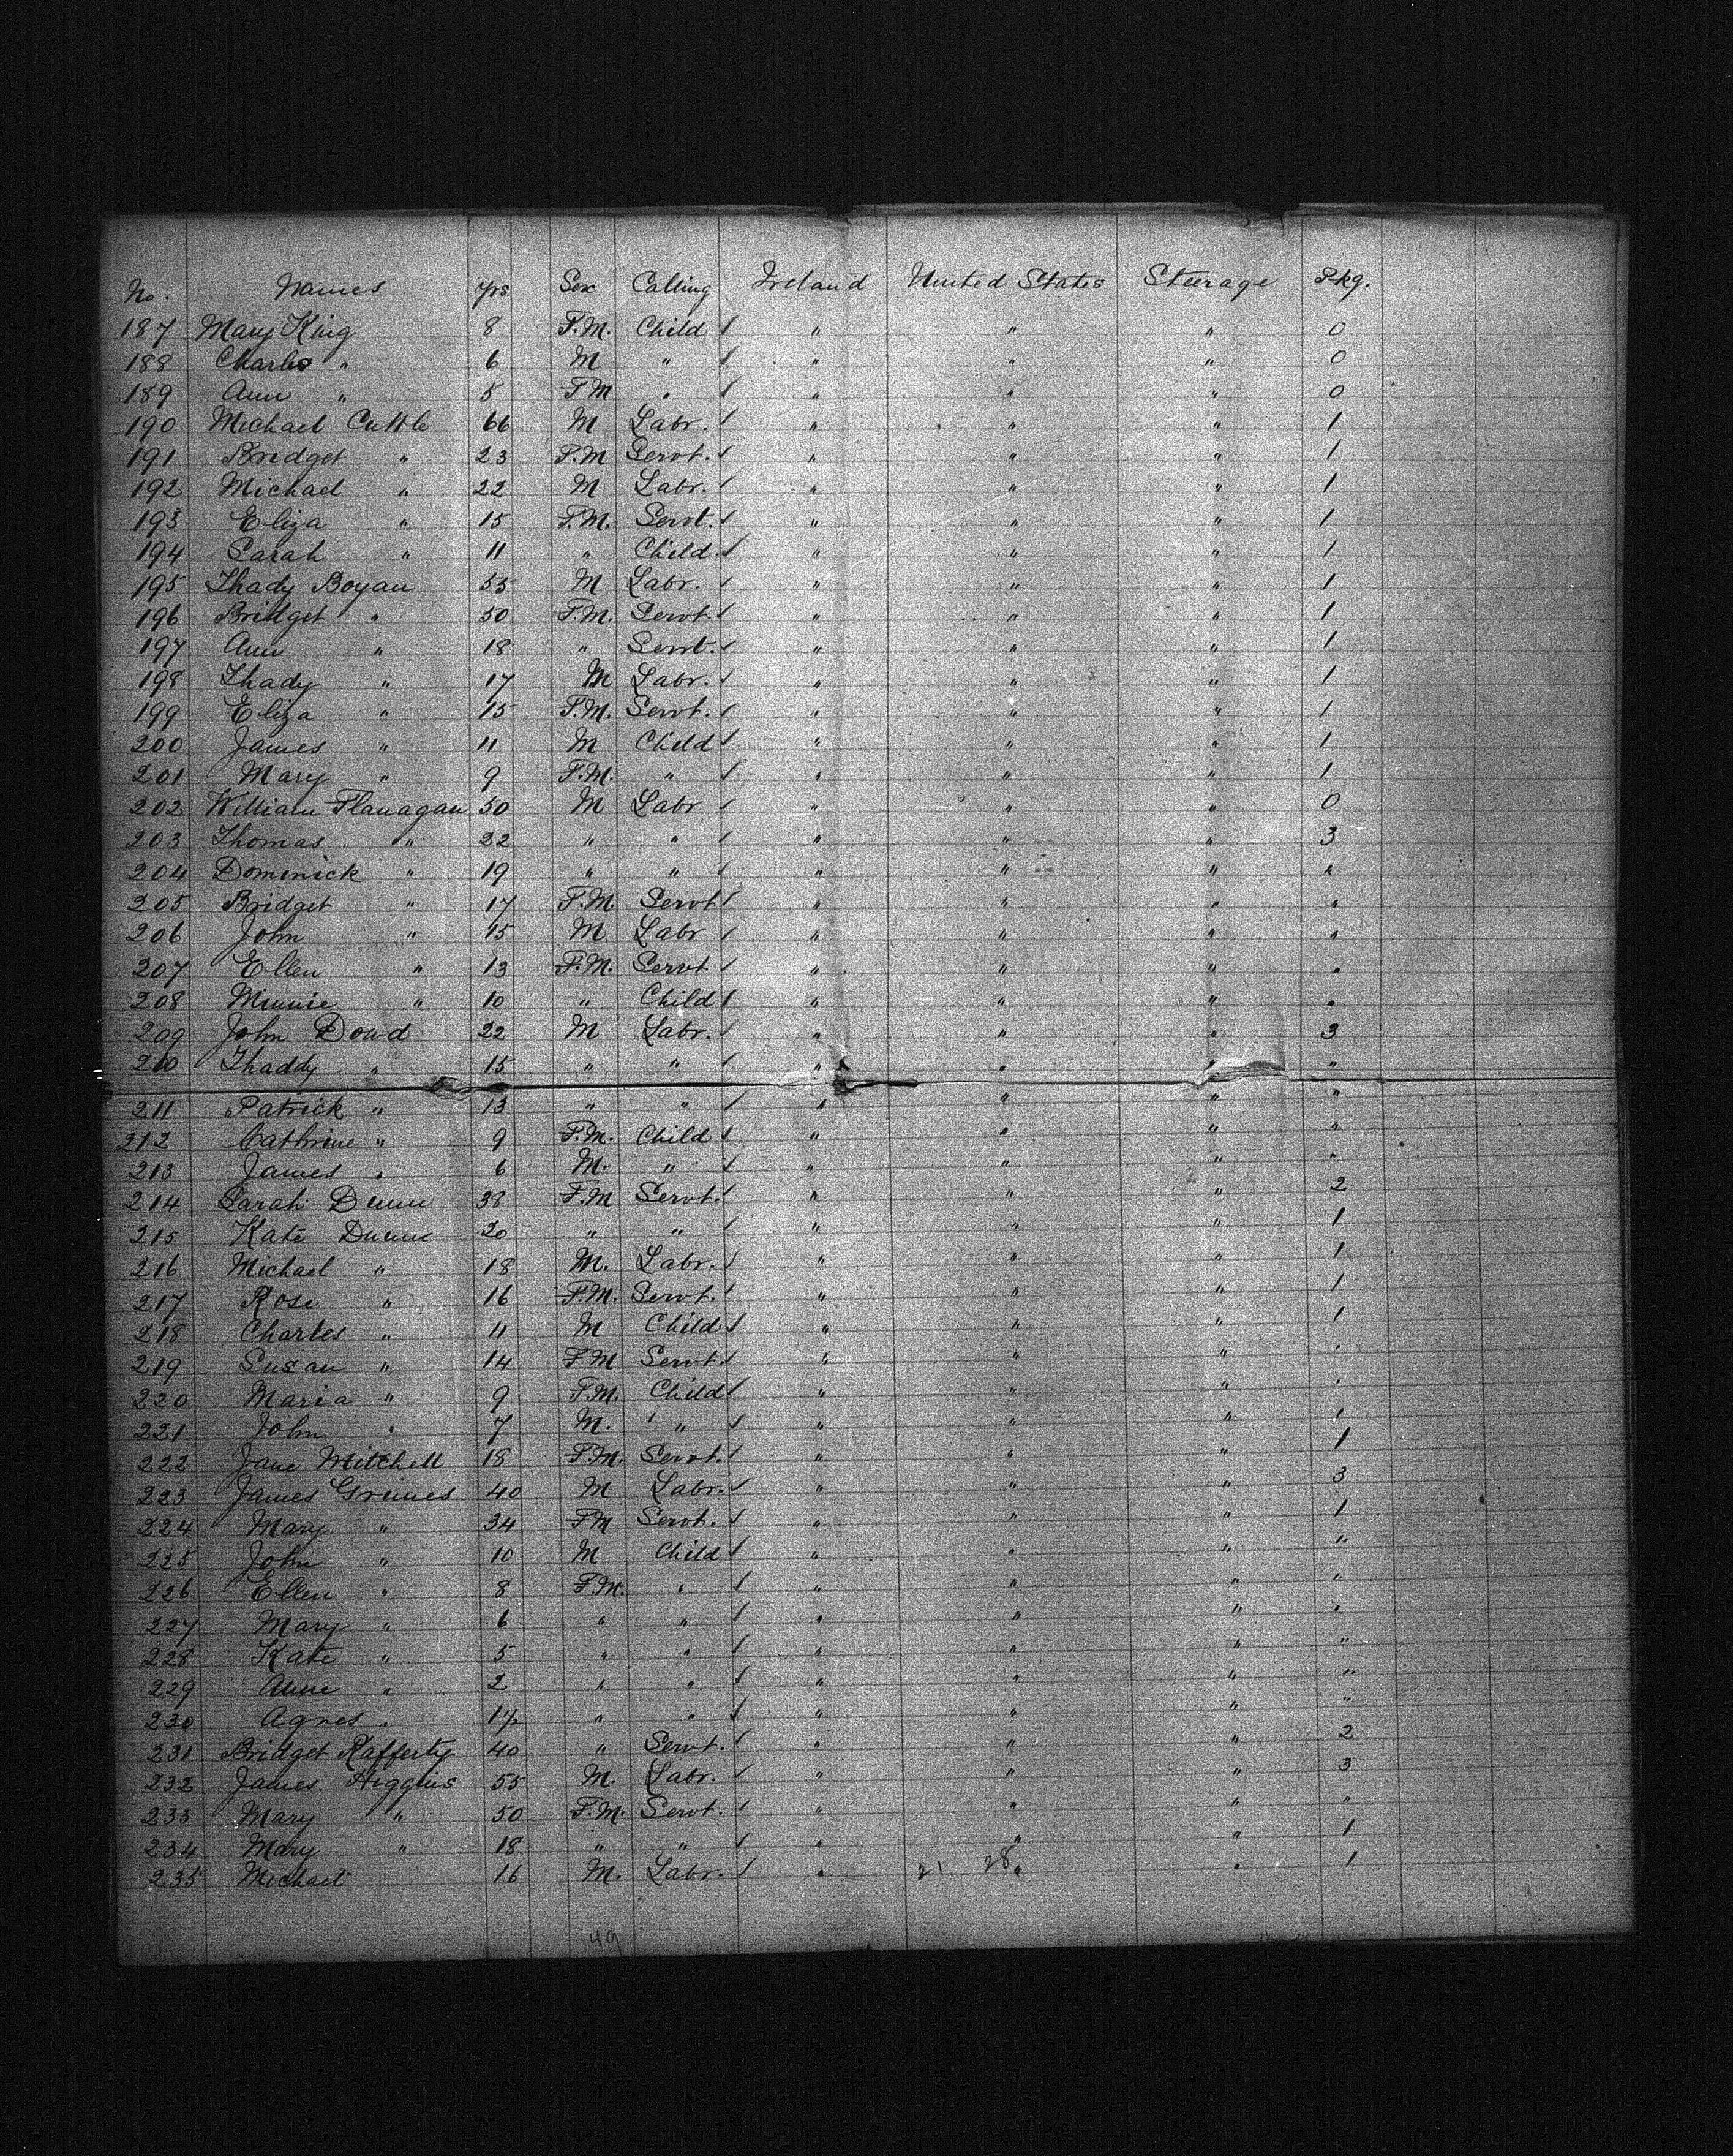 No. Names yrs Sex Calling Ireland United States Steerage Pkg.
187 Mary King 8 F.M. Child ✓ " " " 0
188 Charles " 6 M " ✓ " " " 0
189 Ann " 5 F M " ✓ " " " 0
190 Michael Cuttle 66 M Labr. ✓ " " " 1
191 Bridget " 23 F.M Servt. ✓ " " " 1
192 Michael " 22 M Labr. ✓ " " " 1
193 Eliza " 15 F.M. Servt. ✓ " " " 1
194 Sarah " 11 " Child. ✓ " " " 1
195 Thady Boyan 55 M Labr. ✓ " " " 1
196 Bridget " 50 F.M. Servt. ✓ " " " 1
197 Ann " 18 " Servt. ✓ " " " 1
198 Thady " 17 M Labr. ✓ " " " 1
199 Eliza " 15 F.M. Servt. ✓ " " " 1
200 James " 11 M Child ✓ " " " 1
201 Mary " 9 F.M. " ✓ " " " 1
202 William Flanagan 50 M Labr ✓ " " " 0
203 Thomas " 22 " " ✓ " " " 3
204 Dominick " 19 " " ✓ " " " "
205 Bridget " 17 F.M. Servt ✓ " " " "
206 John " 15 M Labr ✓ " " " "
207 Ellen " 13 F.M. Servt ✓ " " " "
208 Minnie " 10 " Child ✓ " " " "
209 John Dowd 22 M Labr. ✓ " " " 3
210 Thaddy " 15 " " ✓ " " " "
211 Patrick " 13 " " ✓ " " " "
212 Cathrine " 9 F.M. Child ✓ " " " "
213 James " 6 M. " ✓ " " " "
214 Sarah Dunn 38 F.M Servt. ✓ " " " 2
215 Kate Dunne 20 " " ✓ " " " 1
216 Michael " 18 M. Labr. ✓ " " " 1
217 Rose " 16 F.M. Servt. ✓ " " " 1
218 Charles " 11 M Child ✓ " " " 1
219 Susan " 14 F M Servt ✓ " " " "
220 Maria " 9 F.M. Child ✓ " " " "
221 John " 7 M. " ✓ " " " 1
222 Jane Mitchell 18 F.M. Servt. ✓ " " " 1
223 James Grimes 40 M Labr. ✓ " " " 3
224 Mary " 34 F M Servt. ✓ " " " 1
225 John " 10 M Child ✓ " " " "
226 Ellen " 8 F.M. " ✓ " " " "
227 Mary " 6 " " ✓ " " " "
228 Kate " 5 " " ✓ " " " "
229 Anne " 2 " " ✓ " " " "
230 Agnes " 1½ " " ✓ " " " "
231 Bridget Rafferty 40 " Servt. ✓ " " " 2
232 James Higgins 55 M. Labr. ✓ " " " 3
233 Mary " 50 F.M. Servt. ✓ " " " "
234 Mary " 18 " " ✓ " " " 1
235 Michael 16 M. Labr. ✓ " 21 28 " " 1
49